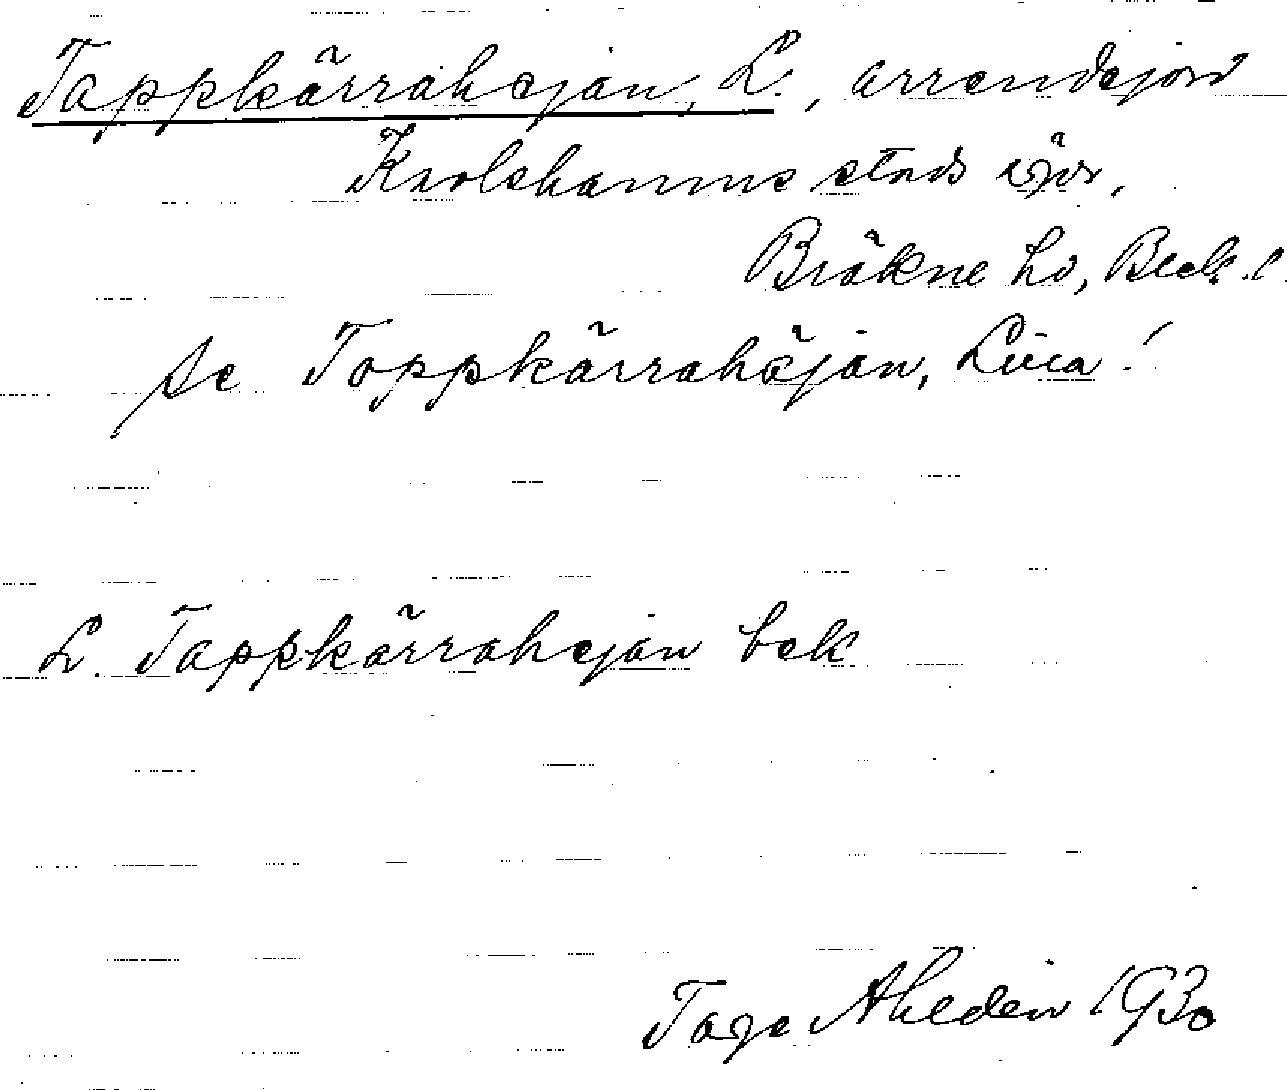 Tappkärrahejan, L., arrendejord
Karlshamns stads egor,
Bräkne hd, Blek. l.
se Toppkärrahöjan, Lilla!
L. Tappkärrahejan bek
Tage Ahldén 1930